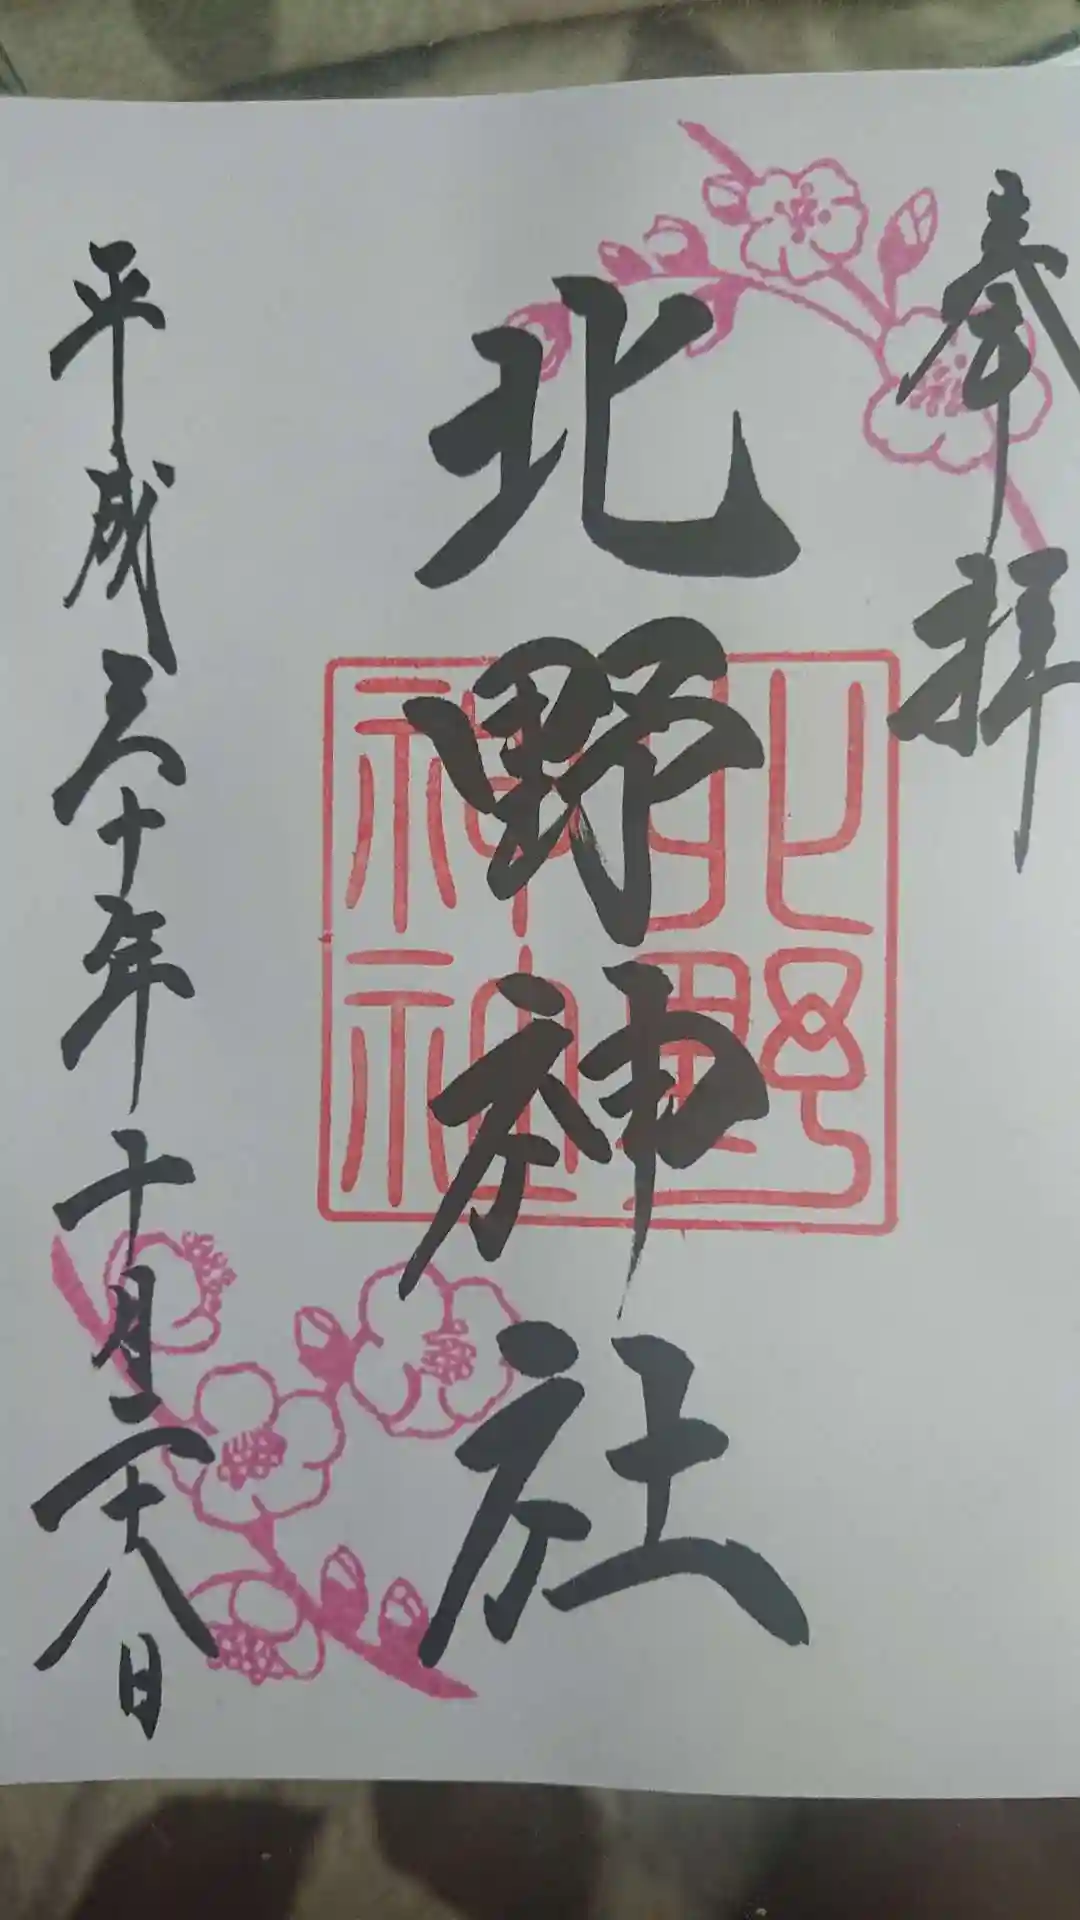 奉拝
北野神社
北野
神社
平成三十年十月二十八日